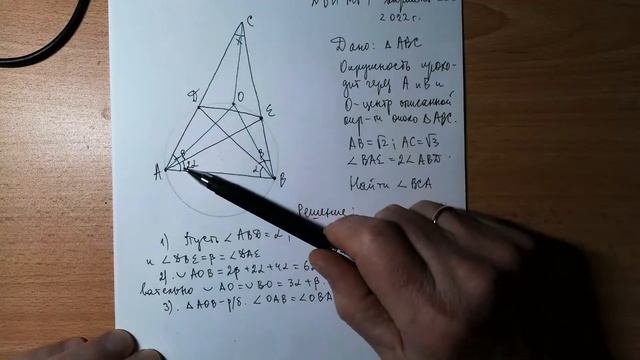 2022 г.
C
D
O
E
A
β
2α
α
β
B
Дано: △ABC
Окружность прохо-
дит через A и B и
O-центр описанной
окр-ти около △ABC.
AB=√2; AC=√3
∠BAE=2∠ABD.
Найти ∠BCA
Решение:
1) Пусть ∠ABD=α;
и ∠DBE=β=∠DAE
2). ∪AOB=2β+2α+4α=6α
вательно ∪AO=∪BO=3α+β.
3). △AOB-р/б. ∠OAB=∠OBA